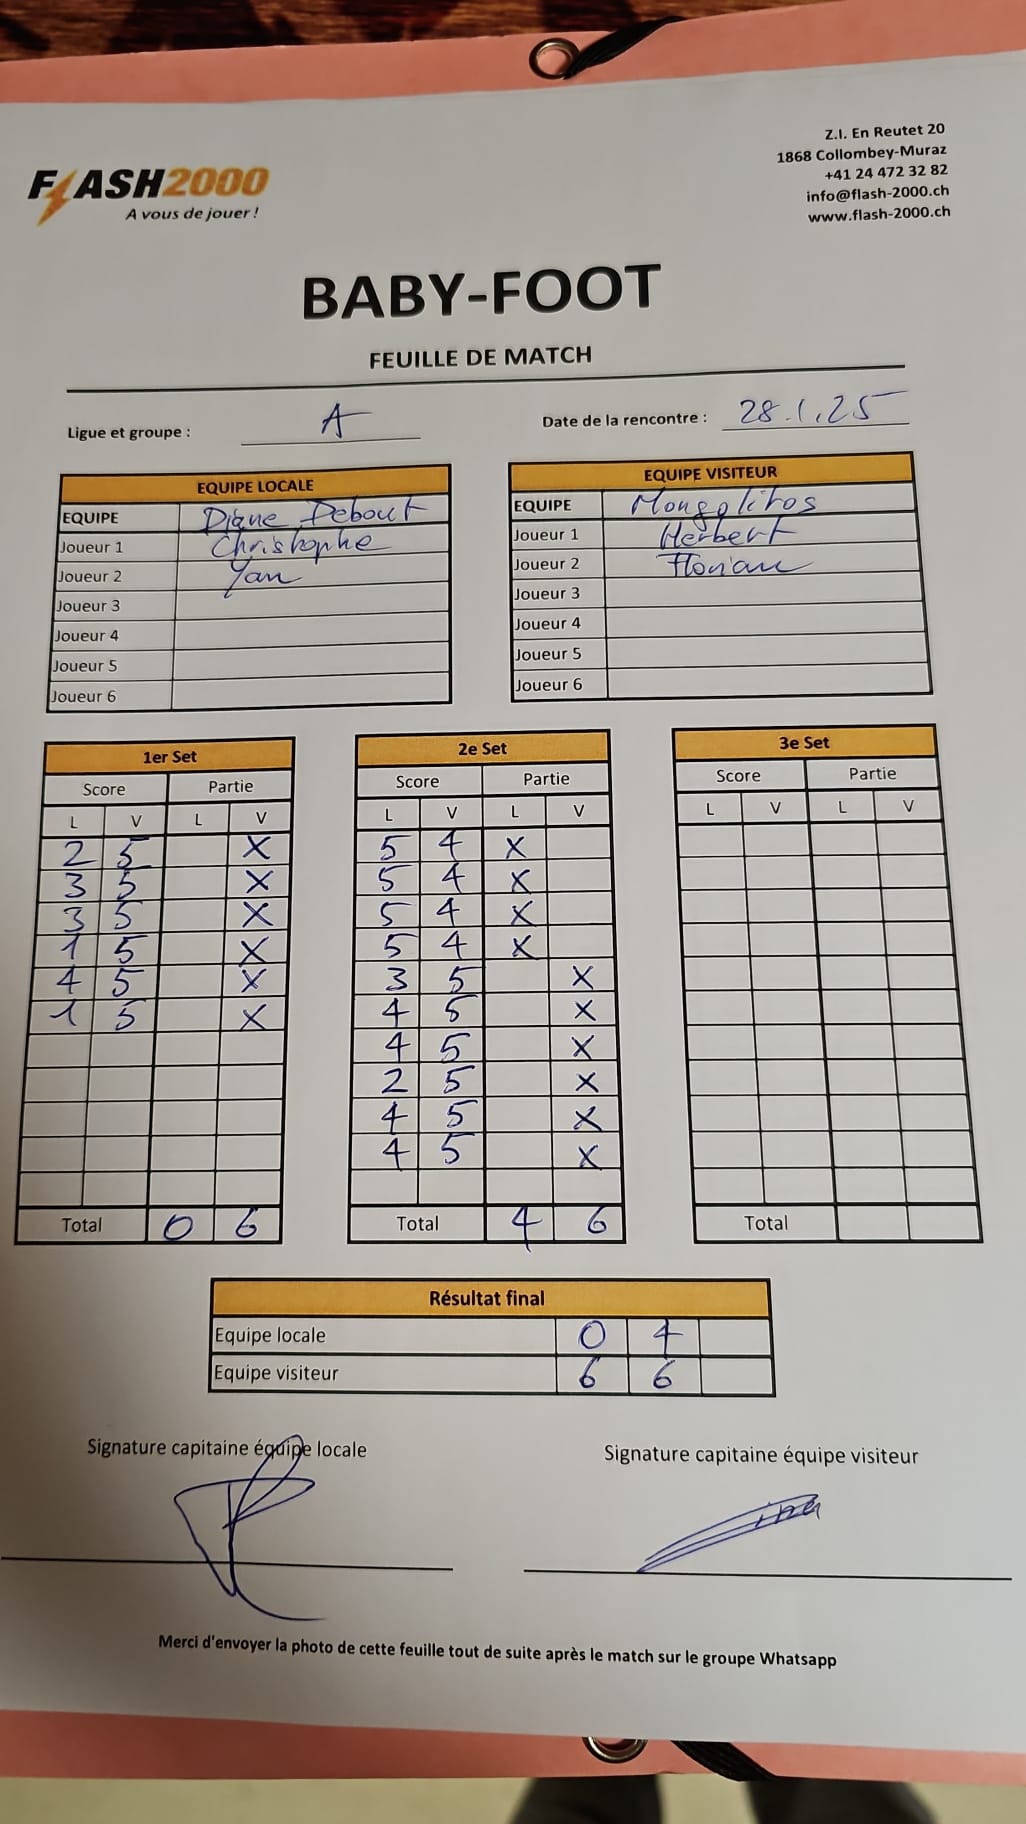 FLASH2000
A vous de jouer !
Z.I. En Reutet 20
1868 Collombey-Muraz
+41 24 472 32 82
info@flash-2000.ch
www.flash-2000.ch
BABY-FOOT
FEUILLE DE MATCH
Ligue et groupe : A
Date de la rencontre : 28.1.25
EQUIPE LOCALE
EQUIPE Diane Debout
Joueur 1 Christophe
Joueur 2 Yan
Joueur 3
Joueur 4
Joueur 5
Joueur 6
EQUIPE VISITEUR
EQUIPE Mongolitos
Joueur 1 Herbert
Joueur 2 Florian
Joueur 3
Joueur 4
Joueur 5
Joueur 6
1er Set
Score Partie
L V L V
2 5 X
3 5 X
3 5 X
1 5 X
4 5 X
1 5 X
Total 0 6
2e Set
Score Partie
L V L V
5 4 X
5 4 X
5 4 X
5 4 X
3 5 X
4 5 X
4 5 X
2 5 X
4 5 X
4 5 X
Total 4 6
3e Set
Score Partie
L V L V
Total
Résultat final
Equipe locale 0 4
Equipe visiteur 6 6
Signature capitaine équipe locale
Signature capitaine équipe visiteur
Merci d'envoyer la photo de cette feuille tout de suite après le match sur le groupe Whatsapp